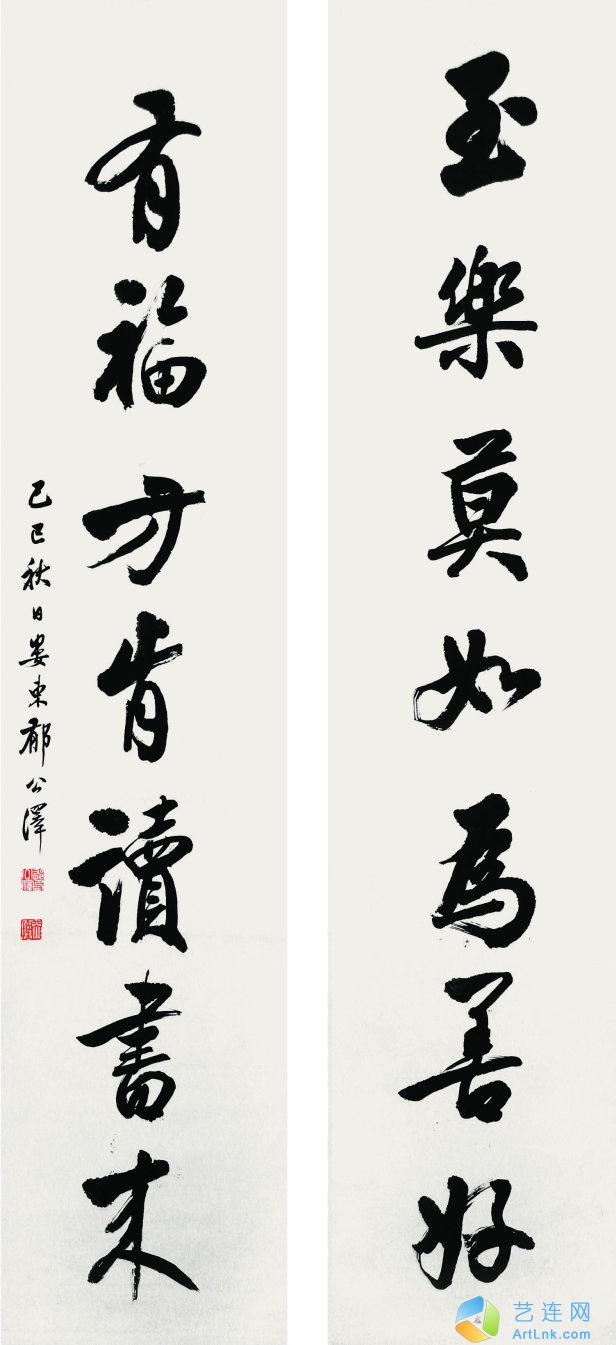 至樂莫如為善好
有福方肯讀書来
己巳秋日娄東郁公澤
艺连网
ArtLnk.com